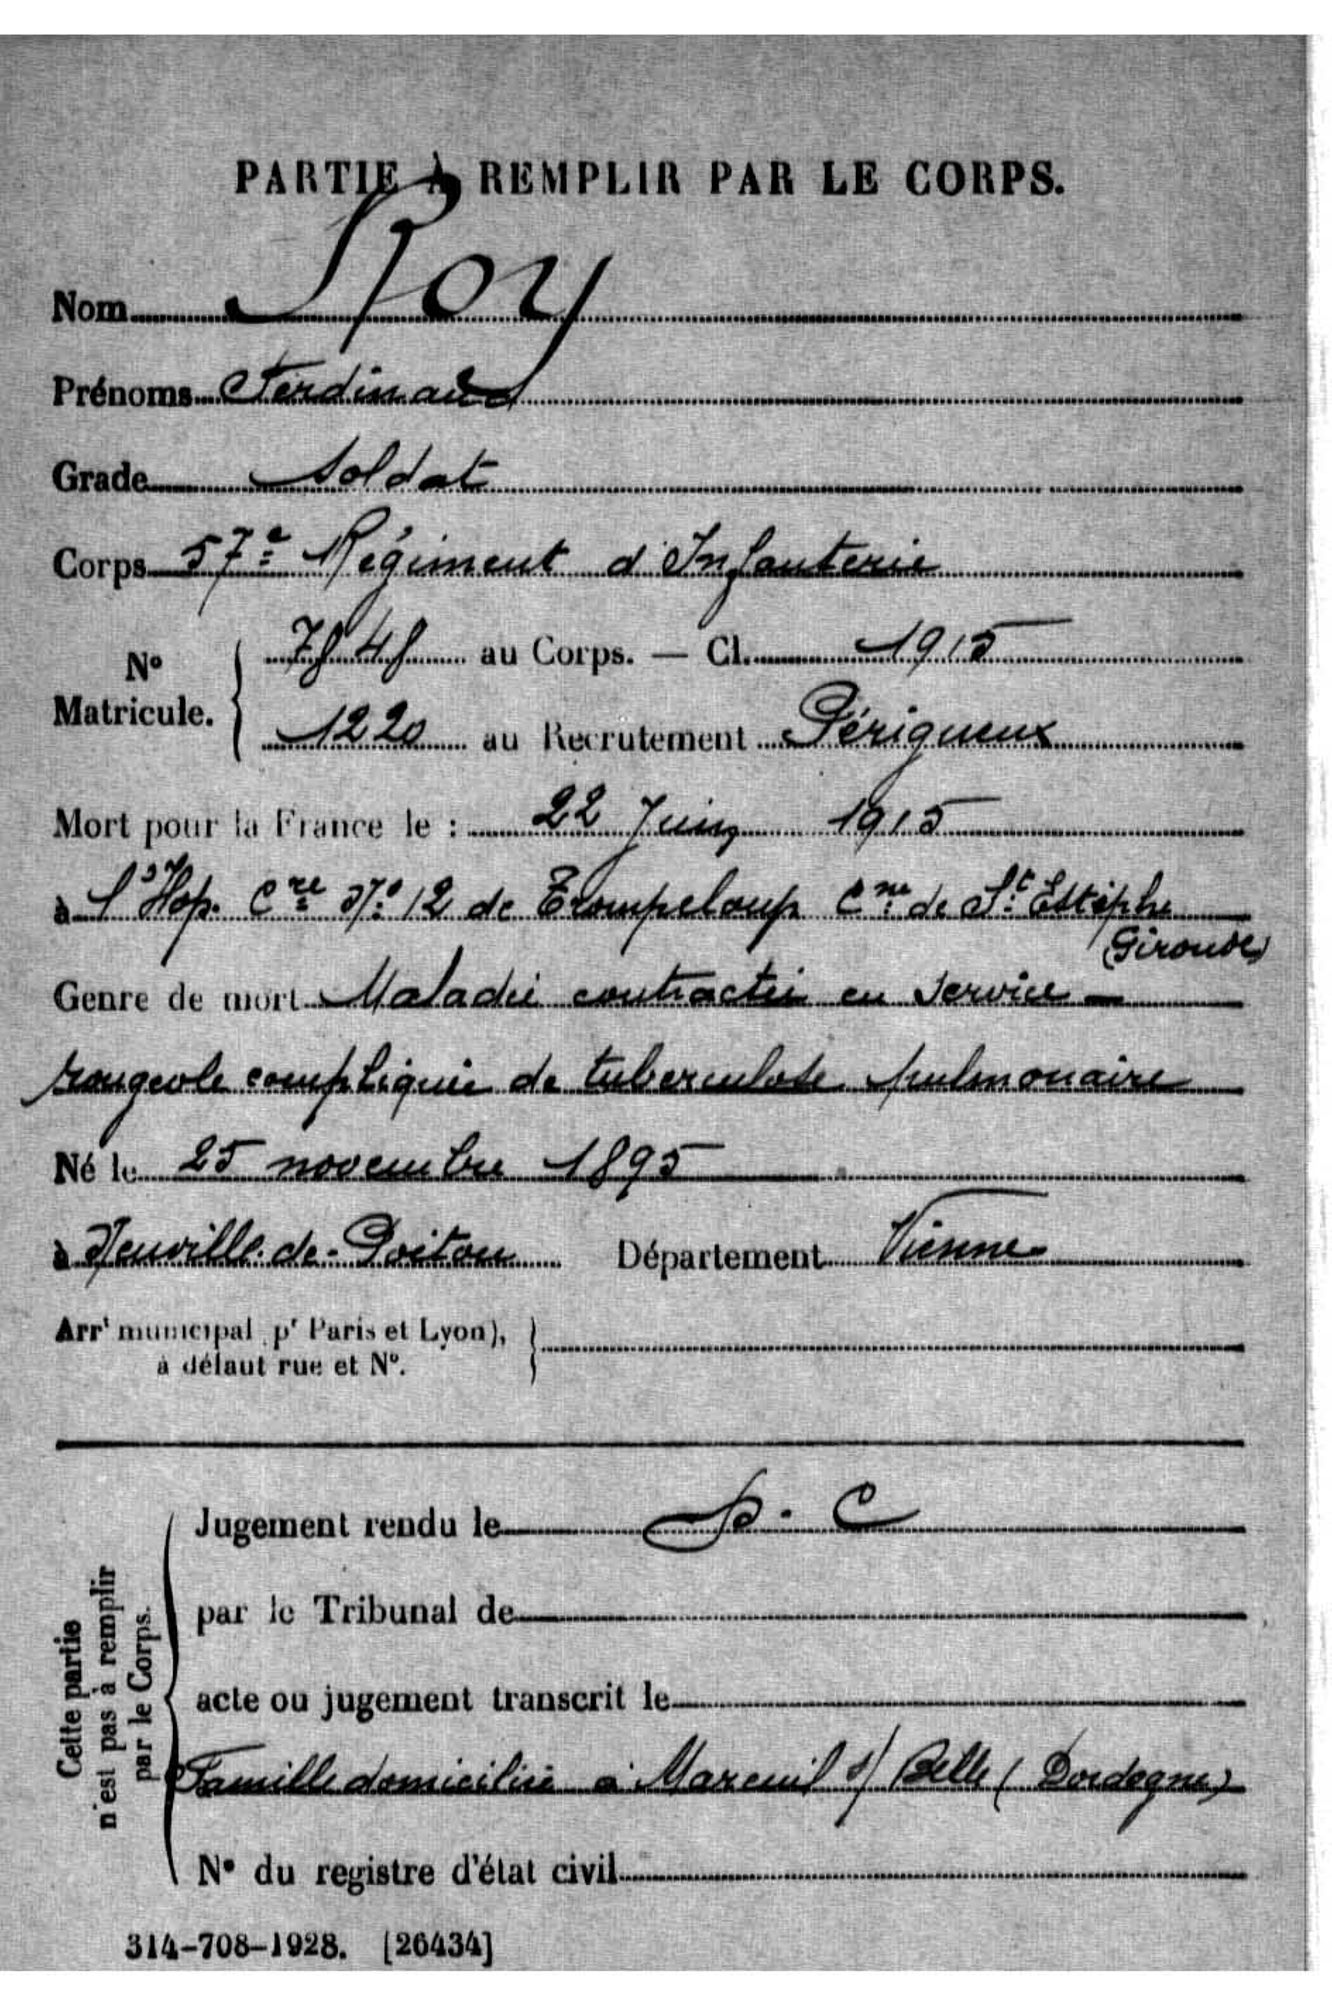 PARTIE À REMPLIR PAR LE CORPS.
Nom Roy
Prénoms Ferdinand
Grade Soldat
Corps 57e Régiment d'Infanterie
N° Matricule. 7848 au Corps. — Cl. 1915
1220 au Recrutement Périgueux
Mort pour la France le : 22 Juin 1915
à l'Hop. Cre N° 12 de Trompeloup Cne de St Estèphe
(Gironde)
Genre de mort Maladie contractée en service —
rougeole compliquée de tuberculose pulmonaire
Né le 25 novembre 1895
à Neuville-de-Poitou Département Vienne
Arrt municipal pr Paris et Lyon),
à défaut rue et N°.
Cette partie
n'est pas à remplir
par le Corps.
Jugement rendu le
par le Tribunal de
acte ou jugement transcrit le
Famille domiciliée à Mareuil s/ Belle (Dordogne)
N° du registre d'état civil
314-708-1928. [26434]